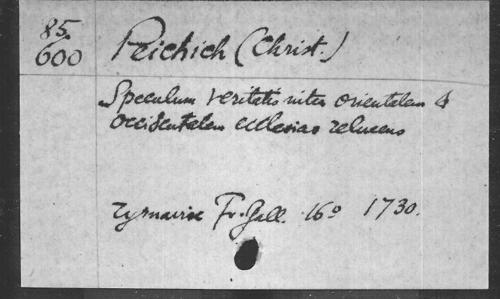 85.
600
Peichich (Christ.)
Speculum veritatis inter orientalem &
occidentalem ecclesias relucens
Tyrnaviae Fr. Gall. 16° 1730.